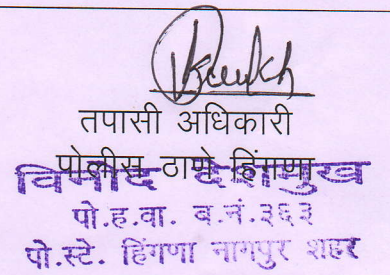 तपासी अधिकारी
पोलीस ठाणे हिंगणा
विनोद देशमुख
पो.ह.वा. ब.नं.३६३
पो.स्टे. हिंगणा नागपुर शहर